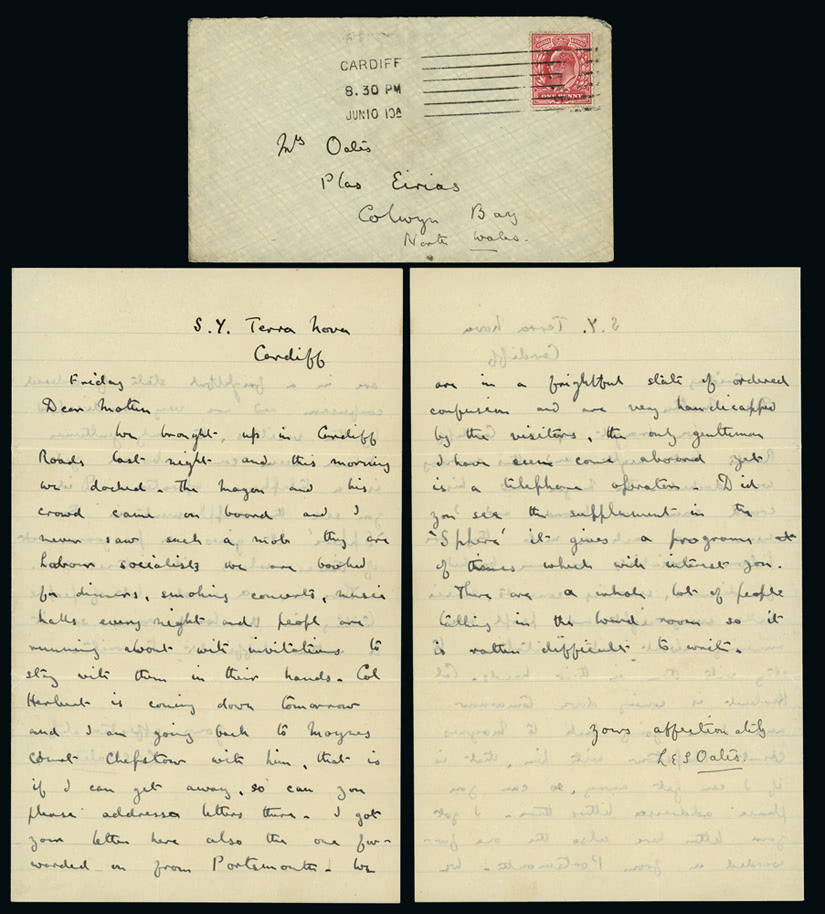 CARDIFF
8.30 PM
JUN 10 10
Mrs Oates
Plas Eirias
Colwyn Bay
North Wales.
S.Y. Terra Nova
Cardiff
Friday
Dear Mother
We brought up in Cardiff
Roads last night and this morning
we docked. The Mayor and his
crowd came on board and I
never saw such a mob they are
Labour socialists we are booked
for dinners, smoking concerts, music
halls every night and peopl are
running about with invitations to
stay with them in their hands. Col
Herbert is coming down tomorrow
and I am going back to Moynes
Court Chepstow with him, that is
if I can get away, so can you
please address letters there. I got
your letter here also the one for-
warded on from Portsmouth. We
are in a frightful state of ordered
confusion and are very handicapped
by the visitors, the only gentleman
I have seen come aboard yet
is a telephone operator. Did
you see the supplement in the
'Sphere' it gives a programe
of times which will interest you.
There are a whole lot of people
talking in the ward room so it
is rather difficult to write.
Yours affectionately
L E G Oates.